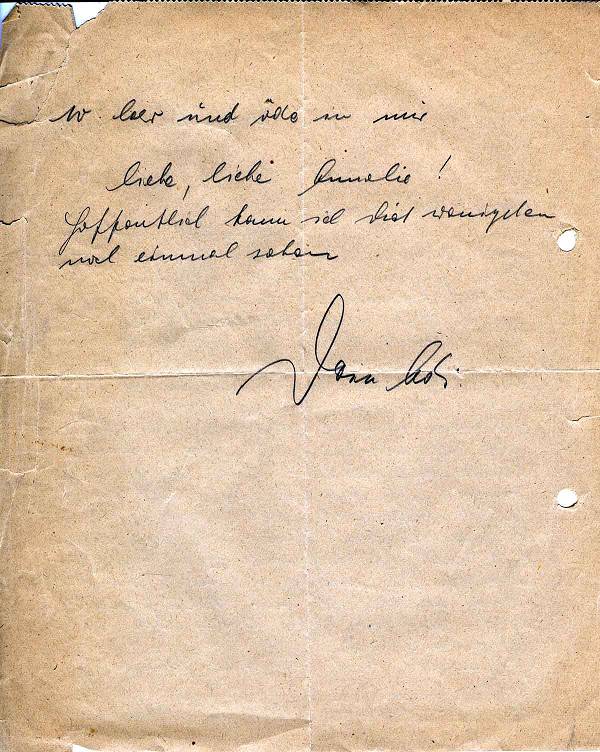 so leer und öde in mir
Liebe, liebe Annelie!
Hoffentlich kann ich dich wenigsten
noch einmal sehen
Dein Adi.